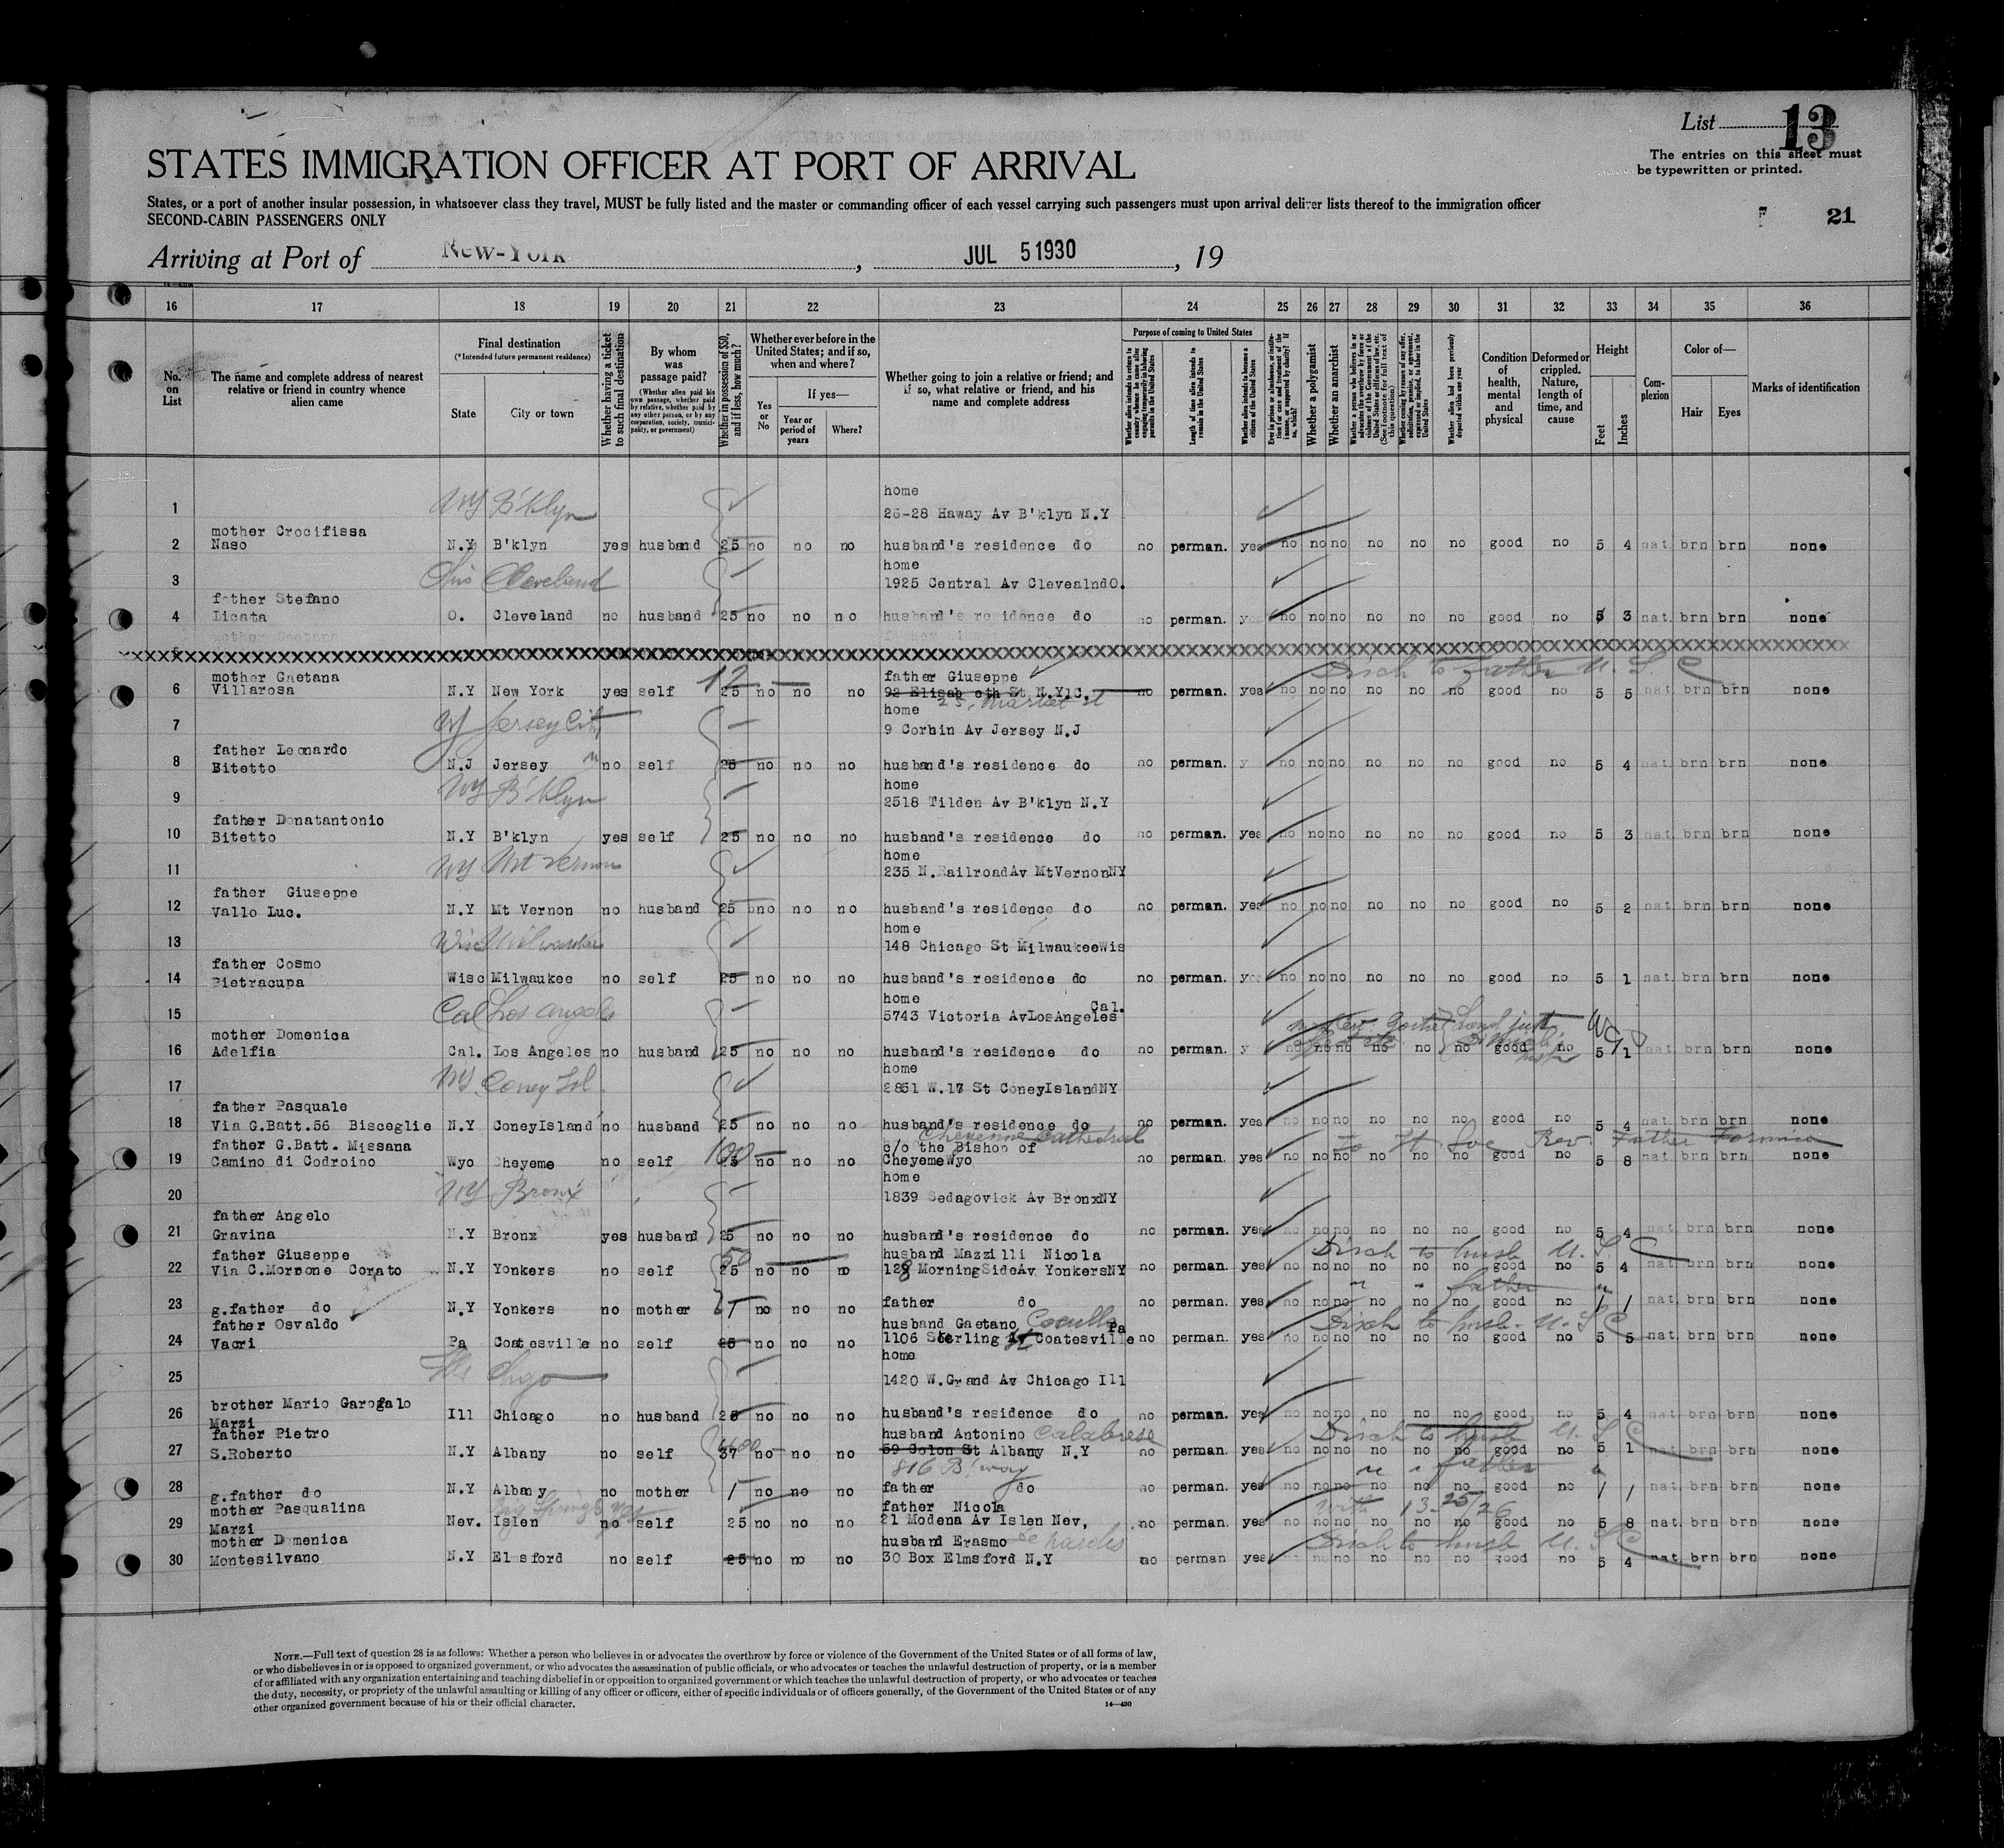 List 13
The entries on this sheet must
be typewritten or printed.
STATES IMMIGRATION OFFICER AT PORT OF ARRIVAL
States, or a port of another insular possession, in whatsoever class they travel, MUST be fully listed and the master or commanding officer of each vessel carrying such passengers must upon arrival deliver lists thereof to the immigration officer
SECOND-CABIN PASSENGERS ONLY
21
Arriving at Port of New-York, JUL 5 1930, 19
16 17 18 19 20 21 22 23 24 25 26 27 28 29 30 31 32 33 34 35 36
No. on List
The name and complete address of nearest relative or friend in country whence alien came
Final destination
(*Intended future permanent residence)
State
City or town
Whether having a ticket to such final destination
By whom was passage paid?
(Whether alien paid his own passage, whether paid by relative, whether paid by any other person, or by any corporation, society, municipality, or government)
Whether in possession of $50, and if less, how much?
Whether ever before in the United States; and if so, when and where?
Yes or No
If yes—
Year or period of years
Where?
Whether going to join a relative or friend; and if so, what relative or friend, and his name and complete address
Purpose of coming to United States
Whether alien intends to return to country whence he came after engaging temporarily in laboring pursuits in the United States
Length of time alien intends to remain in the United States
Whether alien intends to become a citizen of the United States
Whether a polygamist
Whether an anarchist
Condition of health, mental and physical
Deformed or crippled. Nature, length of time, and cause
Height
Feet
Inches
Complexion
Color of—
Hair
Eyes
Marks of identification
1 NY B'klyn home
26-28 Haway Av B'klyn N.Y
mother Crocifissa
2 Naso N.Y B'klyn yes husband 25 no no no husband's residence do no perman. yes no no no no no no good no 5 4 nat. brn brn none
3 Cleveland home
1925 Central Av ClevealndO.
father Stefano
4 Licata O. Cleveland no husband 25 no no no husband's residence do no perman. y no no no no no no good no 5 3 nat. brn brn none
mother Gaetana father Giuseppe Disch to father U.S.C
6 Villarosa N.Y New York yes self 12 25 no no no 92 Elisabeth St N.Y1C. no perman. yes no no no no no no good no 5 5 nat. brn brn none
25, Market st
7 NJ Jersey City home
9 Corbin Av Jersey N.J
father Leonardo
8 Bitetto N.J Jersey no self 25 no no no husband's residence do no perman. y no no no no no no good no 5 4 nat. brn brn none
9 NY B'klyn home
2518 Tilden Av B'klyn N.Y
father Donatantonio
10 Bitetto N.Y B'klyn yes self 25 no no no husband's residence do no perman. yes no no no no no no good no 5 3 nat. brn brn none
11 NY Mt Vernon home
235 N.RailroadAv MtVernonNY
father Giuseppe
12 Vallo Luc. N.Y Mt Vernon no husband 25 no no no husband's residence do no perman. yes no no no no no no good no 5 2 nat. brn brn none
13 Wisc Milwaukee home
148 Chicago St MilwaukeeWis
father Cosmo
14 Pietracupa Wisc Milwaukee no self 25 no no no husband's residence do no perman. yes no no no no no no good no 5 1 nat. brn brn none
15 Cal Los Angeles home
5743 Victoria AvLosAngeles Cal.
mother Domenica
16 Adelfia Cal. Los Angeles no husband 25 no no no husband's residence do no perman. y no no no no no no good no 5 1 nat. brn brn none
17 NY Coney Isl. home
2851 W.17 St ConeyIslandNY
father Pasquale
18 Via G.Batt.56 Bisceglie N.Y ConeyIsland no husband 25 no no no husband's residence do no perman. yes no no no no no no good no 5 4 nat. brn brn none
father G.Batt. Missana Cheyenne Cathedral
c/o the Bishop of Rev. Father Formica
19 Camino di Codroipo Wyo Cheyeme no self 100 25 no no no CheyemeWyo no perman. yes no no no no no no good no 5 8 nat. brn brn none
20 NY Bronx home
1839 Sedagovick Av BronxNY
father Angelo
21 Gravina N.Y Bronx yes husband 25 no no no husband's residence do no perman. yes no no no no no no good no 5 4 nat. brn brn none
father Giuseppe husband Mazzilli Nicola Disch to husb U.S.C
22 Via C.Morpone Corato N.Y Yonkers no self 50 25 no no no 128 MorningSideAv YonkersNY no perman. yes no no no no no no good no 5 4 nat. brn brn none
" " father "
23 g.father do N.Y Yonkers no mother / no no no father do no perman. yes no no no no no no good no / / nat. brn brn none
father Osvaldo husband Gaetano Disch to husb. U.S.C
24 Vacri Pa Coatesville no self 25 no no no 1106 Sterling St Coatesville Pa no perman. yes no no no no no no good no 5 5 nat. brn brn none
25 Ills Chgo home
1420 W.Grand Av Chicago Ill
brother Mario Garofalo
26 Marzi Ill Chicago no husband 25 no no no husband's residence do no perman. yes no no no no no no good no 5 4 nat. brn brn none
father Pietro husband Antonino Calabrese Disch to husb U.S.C
27 S.Roberto N.Y Albany no self 37 no no no 59 Colon St Albany N.Y no perman. yes no no no no no no good no 5 1 nat. brn brn none
816 B'way " " father "
28 g.father do N.Y Albany no mother / no no no father do no perman. yes no no no no no no good no / / nat. brn brn none
mother Pasqualina father Nicola with 13-25/26
29 Marzi Nev. Islen no self 25 no no no 21 Modena Av Islen Nev, no perman. yes no no no no no no good no 5 8 nat. brn brn none
mother Domenica husband Erasmo Disch to husb U.S.C
30 Montesilvano N.Y Elmsford no self 25 no no no 30 Box Elmsford N.Y no perman yes no no no no no good no 5 4 nat. brn brn none
NOTE.—Full text of question 28 is as follows: Whether a person who believes in or advocates the overthrow by force or violence of the Government of the United States or of all forms of law,
or who disbelieves in or is opposed to organized government, or who advocates the assassination of public officials, or who advocates or teaches the unlawful destruction of property, or is a member
of or affiliated with any organization entertaining and teaching disbelief in or opposition to organized government or which teaches the unlawful destruction of property, or who advocates or teaches
the duty, necessity, or propriety of the unlawful assaulting or killing of any officer or officers, either of specific individuals or of officers generally, of the Government of the United States or of any
other organized government because of his or their official character.
14—430